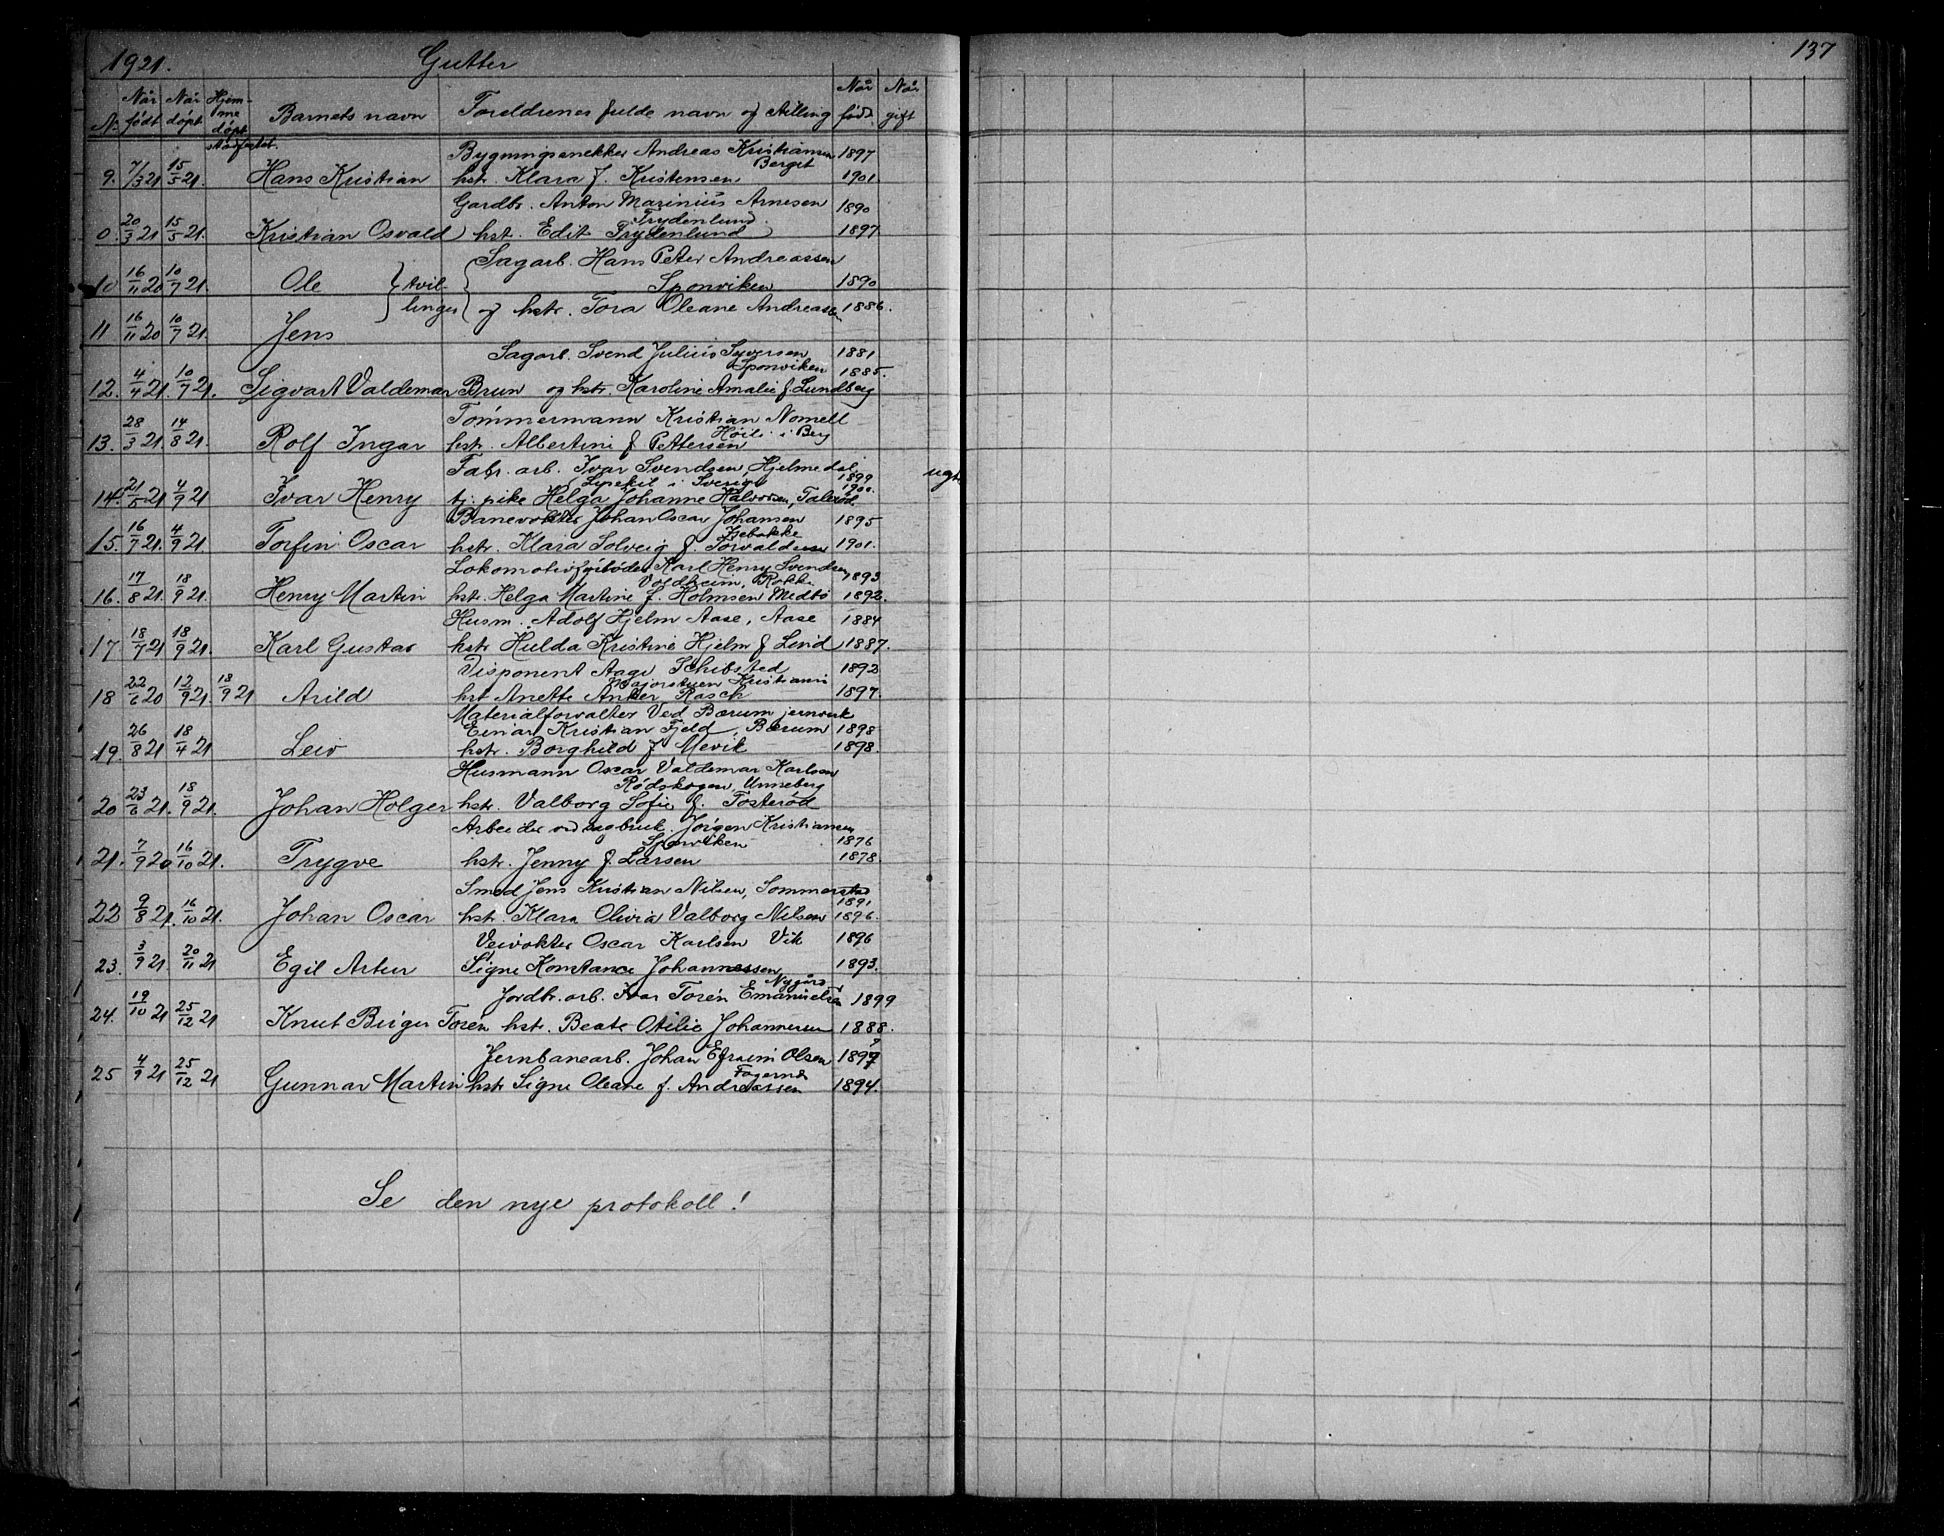 1921. Gutter
137
Nr. Når født Når døpt Hjemmedøpt stadfæstet. Barnets navn Foreldrenes fulde navn og stilling Når født Når gift
Bygningssnekker Andreas Kristiansen 1897
Berget
9. 7/3 21 15/5 21. Hans Kristian hstr. Klara f. Kristensen 1901.
Gardbr. Anton Marinius Arnesen 1890
Trydenlund
0. 20/3 21 15/5 21. Kristian Osvald hst. Edit Trydenlund 1897
Sagarb. Hans Peter Andreassen
10 16/11 20 10/7 21. Ole } tvil- Sponviken 1890
linger og hstr. Tora Oleane Andreasen 1886.
11 16/11 20 10/7 21. Jens
Sagarb. Svend Julius Syversen 1881
Sponviken 1885.
12. 4/4 21. 10/7 21. Sigvart Valdemar Brun og hstr. Karoline Amalie f Lundberg
Tømmermann Kristian Nomell
Høili i Berg
13. 28/3 21. 14/8 21. Rolf Ingar hstr. Albertine f Pettersen
Fabr. arb. Ivar Svendsen, Hjelmedal,
Lysekil i Sverige 1899
ugt.
14. 21/5 21 4/9 21 Ivar Henry tj. pike Helga Johanne Halvorsen, 1900.
Banevokter Johan Oscar Johansen 1895
15. 16/7 21. 4/9 21. Torfin Oscar hstr. Klara Solveig f. Torvaldsen 1901.
Lokomotivfyrbøder Karl Henry Svendsen 1893
Voldheim, Rokke
16. 17/8 21. 18/9 21. Henry Martin hstr. Helga Martine f. Holmsen Medbø 1892.
Husm. Adolf Hjelm Aase, Aase 1884
17 18/7 21 18/9 21. Karl Gustav hstr Hulda Kristine Hjelm f Lind 1887.
Disponent Aage Schibsted 1892
Majorstuen Kristiania
18 22/6 20 12/9 21. 18/9 21 Arild hst Anette Anker Rasch 1897.
Materialforvalter Ved Bærum jernverk
Einar Kristian Fjeld, Bærum 1898
19. 26/8 21 18/4 21 Leiv hstr. Borghild f Mevik 1898.
Husmann Oscar Valdemar Karlsen
Rødskogen, Unneberg
20 23/6 21. 18/9 21. Johan Holger hstr. Valborg Sofie f. Tosterød
Arbeider ved sagbruk. Jørgen Kristiansen
Sponviken 1876
21. 7/9 20 16/10 21. Trygve hstr. Jenny f Larsen 1878.
Smed Jens Kristian Nilsen, Sommerstad
1891
22 9/8 21. 16/10 21. Johan Oscar hstr. Klara Olivia Valborg Nilsen 1896.
Veivokter Oscar Karlsen Vik 1896
23. 3/9 21 20/11 21 Egil Artur Signe Konstance Johannessen 1893.
Nygård
Jordbr. arb. Ivar Torén Emanuelsen 1899
24. 19/10 21 25/12 21 Knut Birger Torén hstr. Beate Otilie Johannesen 1888.
Jernbanearb. Johan Efraim Olsen 1897
Fagernes
25 4/9 21 25/12 21 Gunnar Martin hstr Signe Oleane f. Andreassen 1894.
Se den nye protokoll!